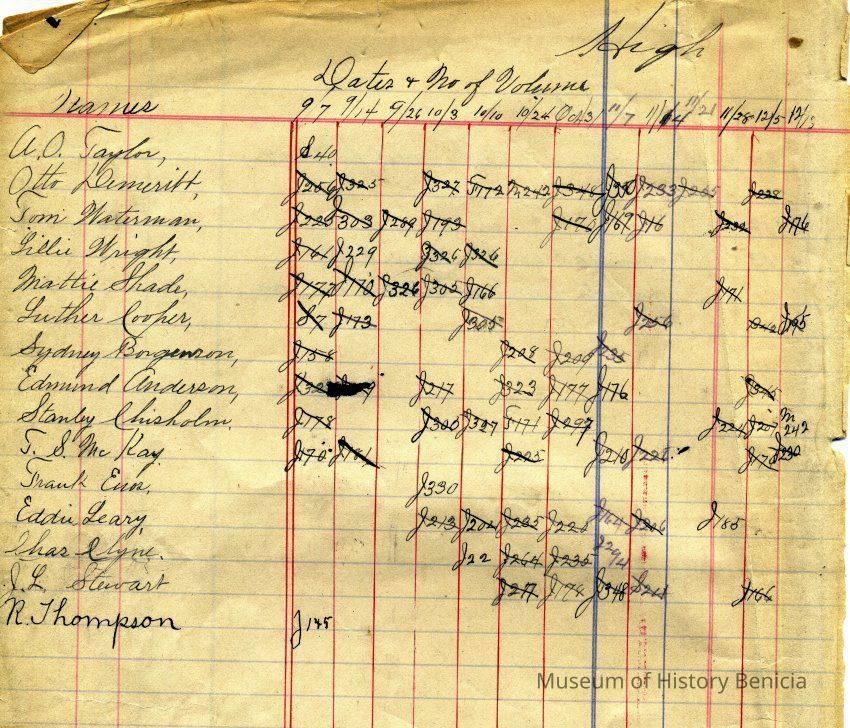 High
Dates & No of Volume
Names 9 7 9/14 9/26 10/3 10/10 10/24 Oct 31 11/7 11/14 11/21 11/28 12/5 12/13
A.O. Taylor, S 40
Otto Demeritt, J325 J327 F172 M242 J233
Tom Waterman, J223 303 J289 J193 J17 J169 J16 J232 J176
Lillie Wright, J161 J229 J326 J326
Mattie Shade, J177 J170 J326 J302 J166 J171
Luther Cooper, S7 J173 J305 J256 J195
Sydney Borgenson, J158 J208 J209
Edmund Anderson, J217 J323 J177 J176
Stanley Chisholm, J178 J300 J327 F171 J297 J224 J207 M242
T. S. McKay J170 J161 J225 J210 J225 J170
Frank Enos, J330
Eddie Leary, J213 J204 J235 J225 J164 J206 J185
Chas Clyne. J22 J264 J235 J294
J.L. Stewart J217 J174 J348 J166
R. Thompson J145
Museum of History Benicia